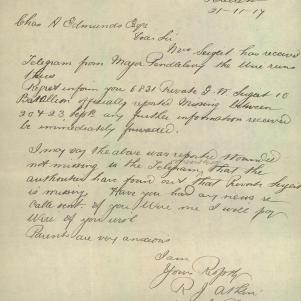 21-11-17
Chas H Edmunds Esqr
Dear Sir
Mrs has received
Telegram from Major the Wire runs
thus
Regret inform you 6831 Private J. W. 10
Battallion officially reported Missing between
20 & 23 Sept any further information received
be immediately forwarded.
I may say the above was reported wounded
not missing in the Telegram that the
authorities have found out that Private
is missing. Have you had any news re
Calls sent. if you Wire me I will pay
Wire if you wish
Parents are very anxious
I am
Yours Respctly
R J